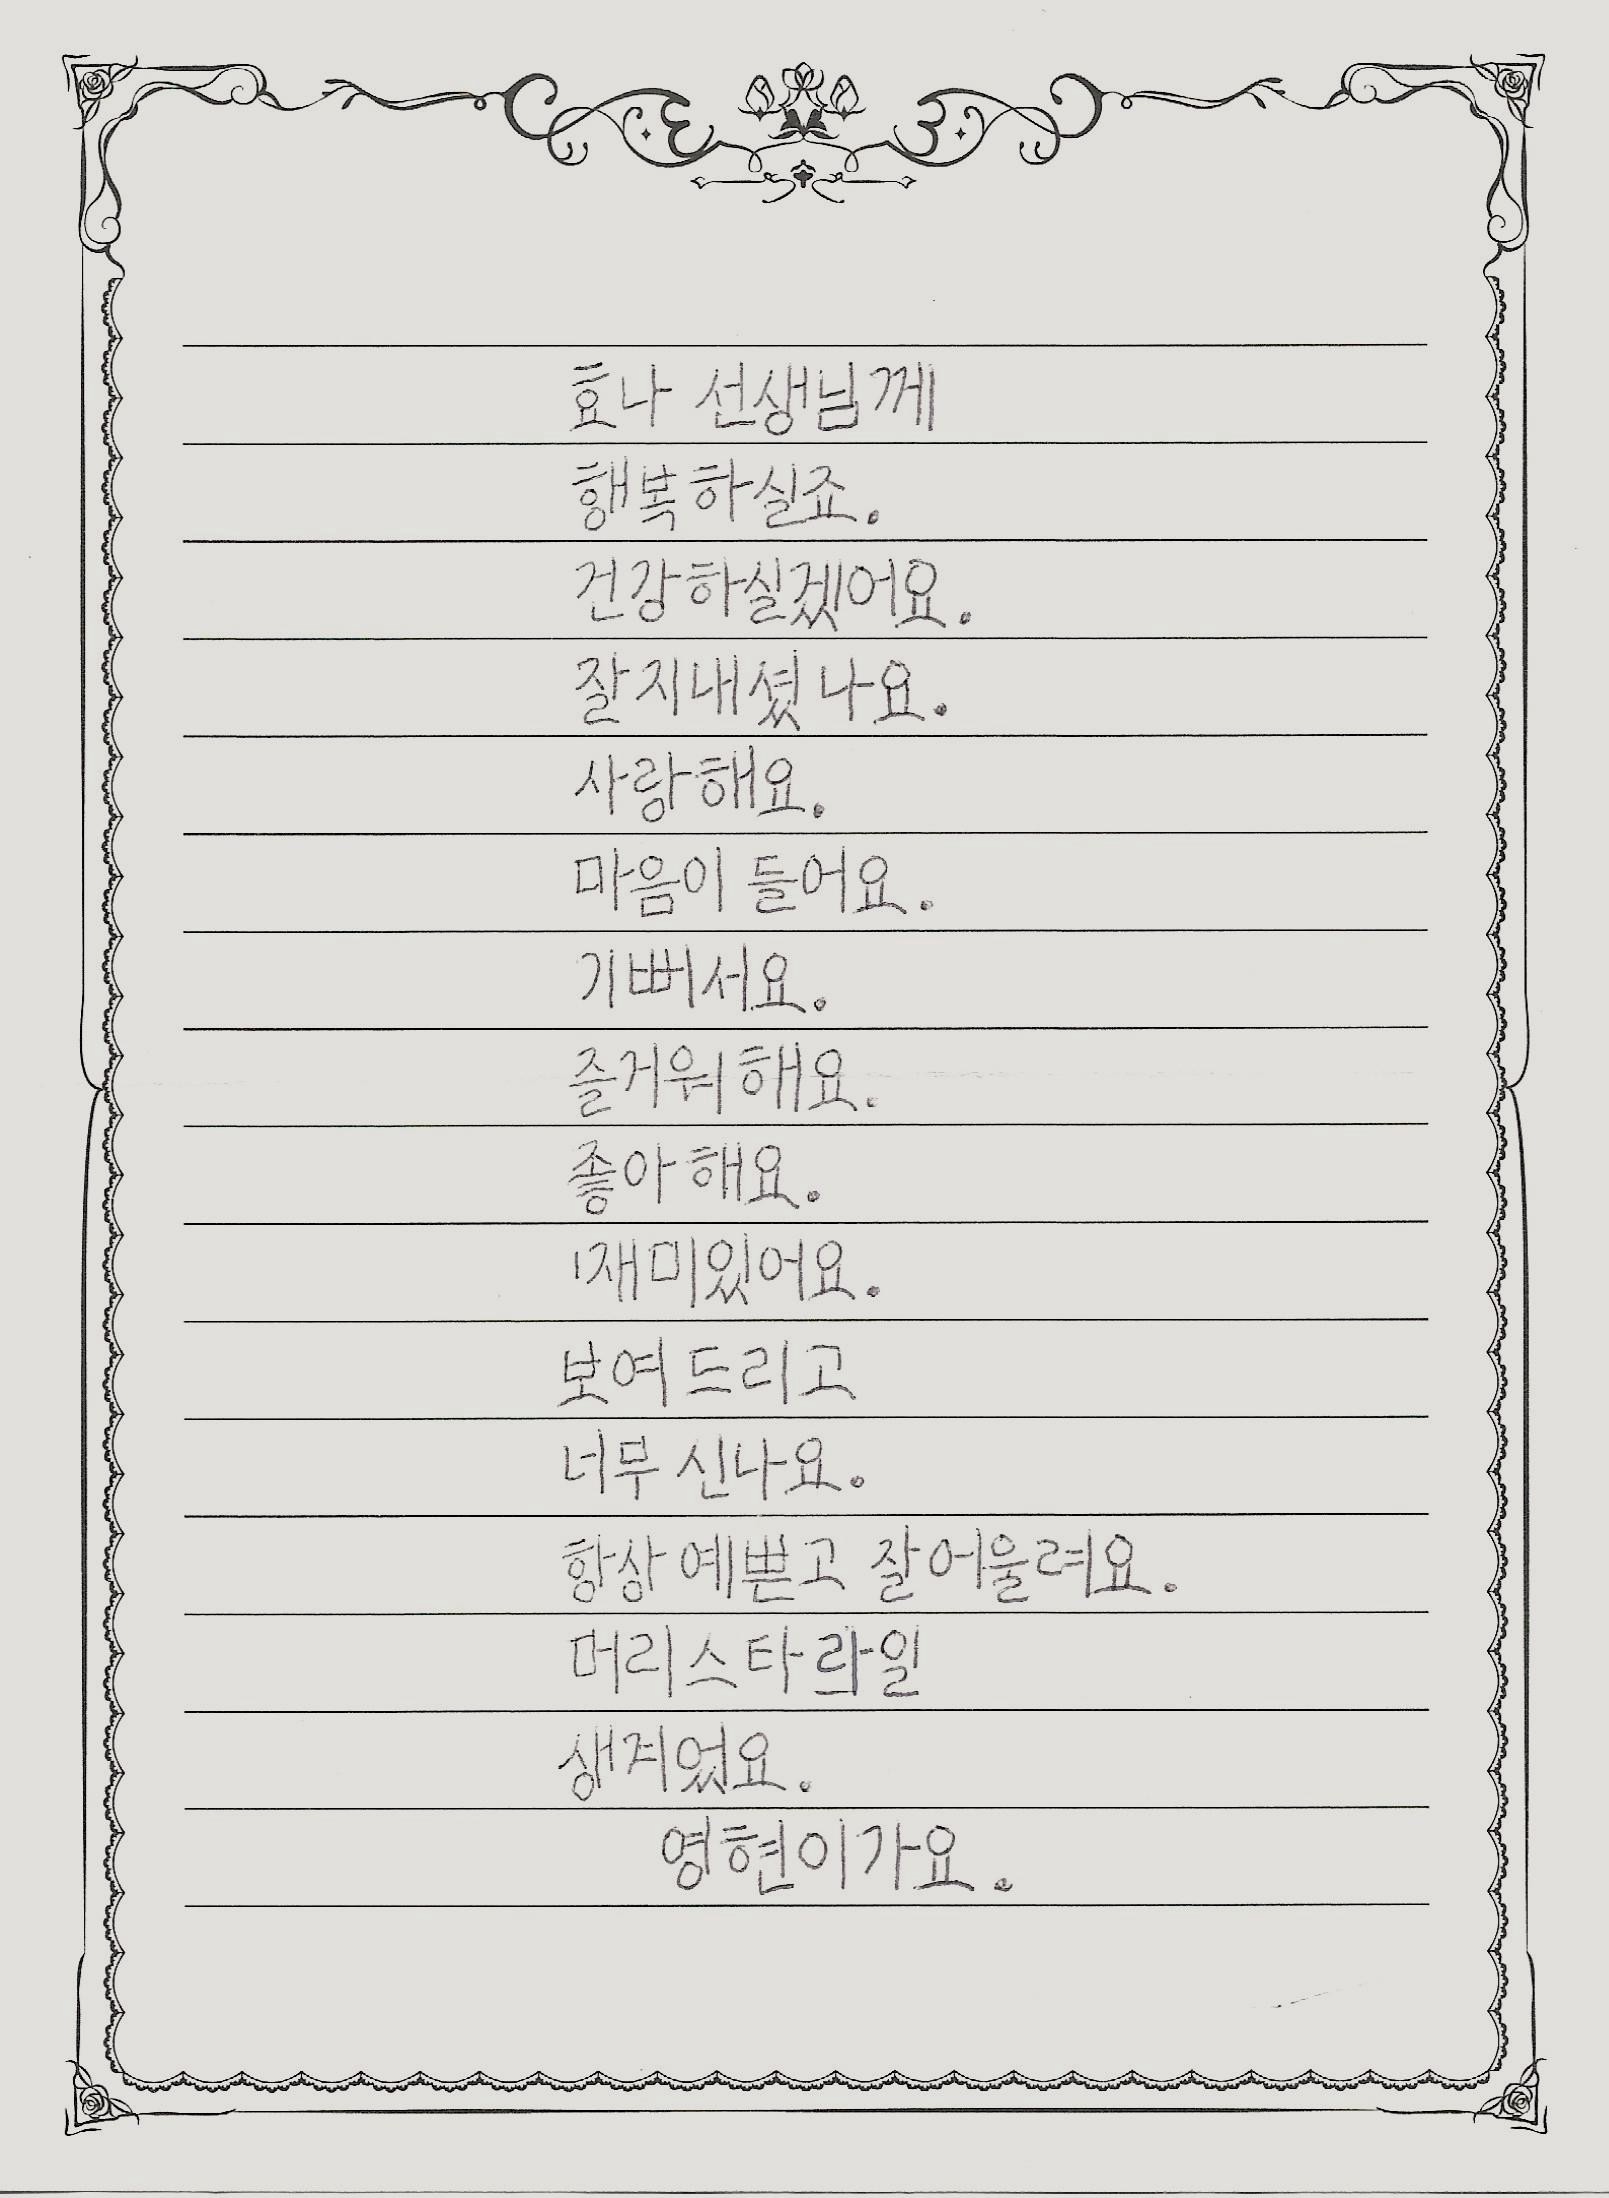 효나 선생님께
행복하실죠.
건강하실겠어요.
잘지내셨나요.
사랑해요.
마음이 들어요.
기뻐서요.
즐거워해요.
좋아해요.
재미있어요.
보여드리고
너무 신나요.
항상 예쁜고 잘어울려요.
머리스타라일
생겨었요.
영현이가요.